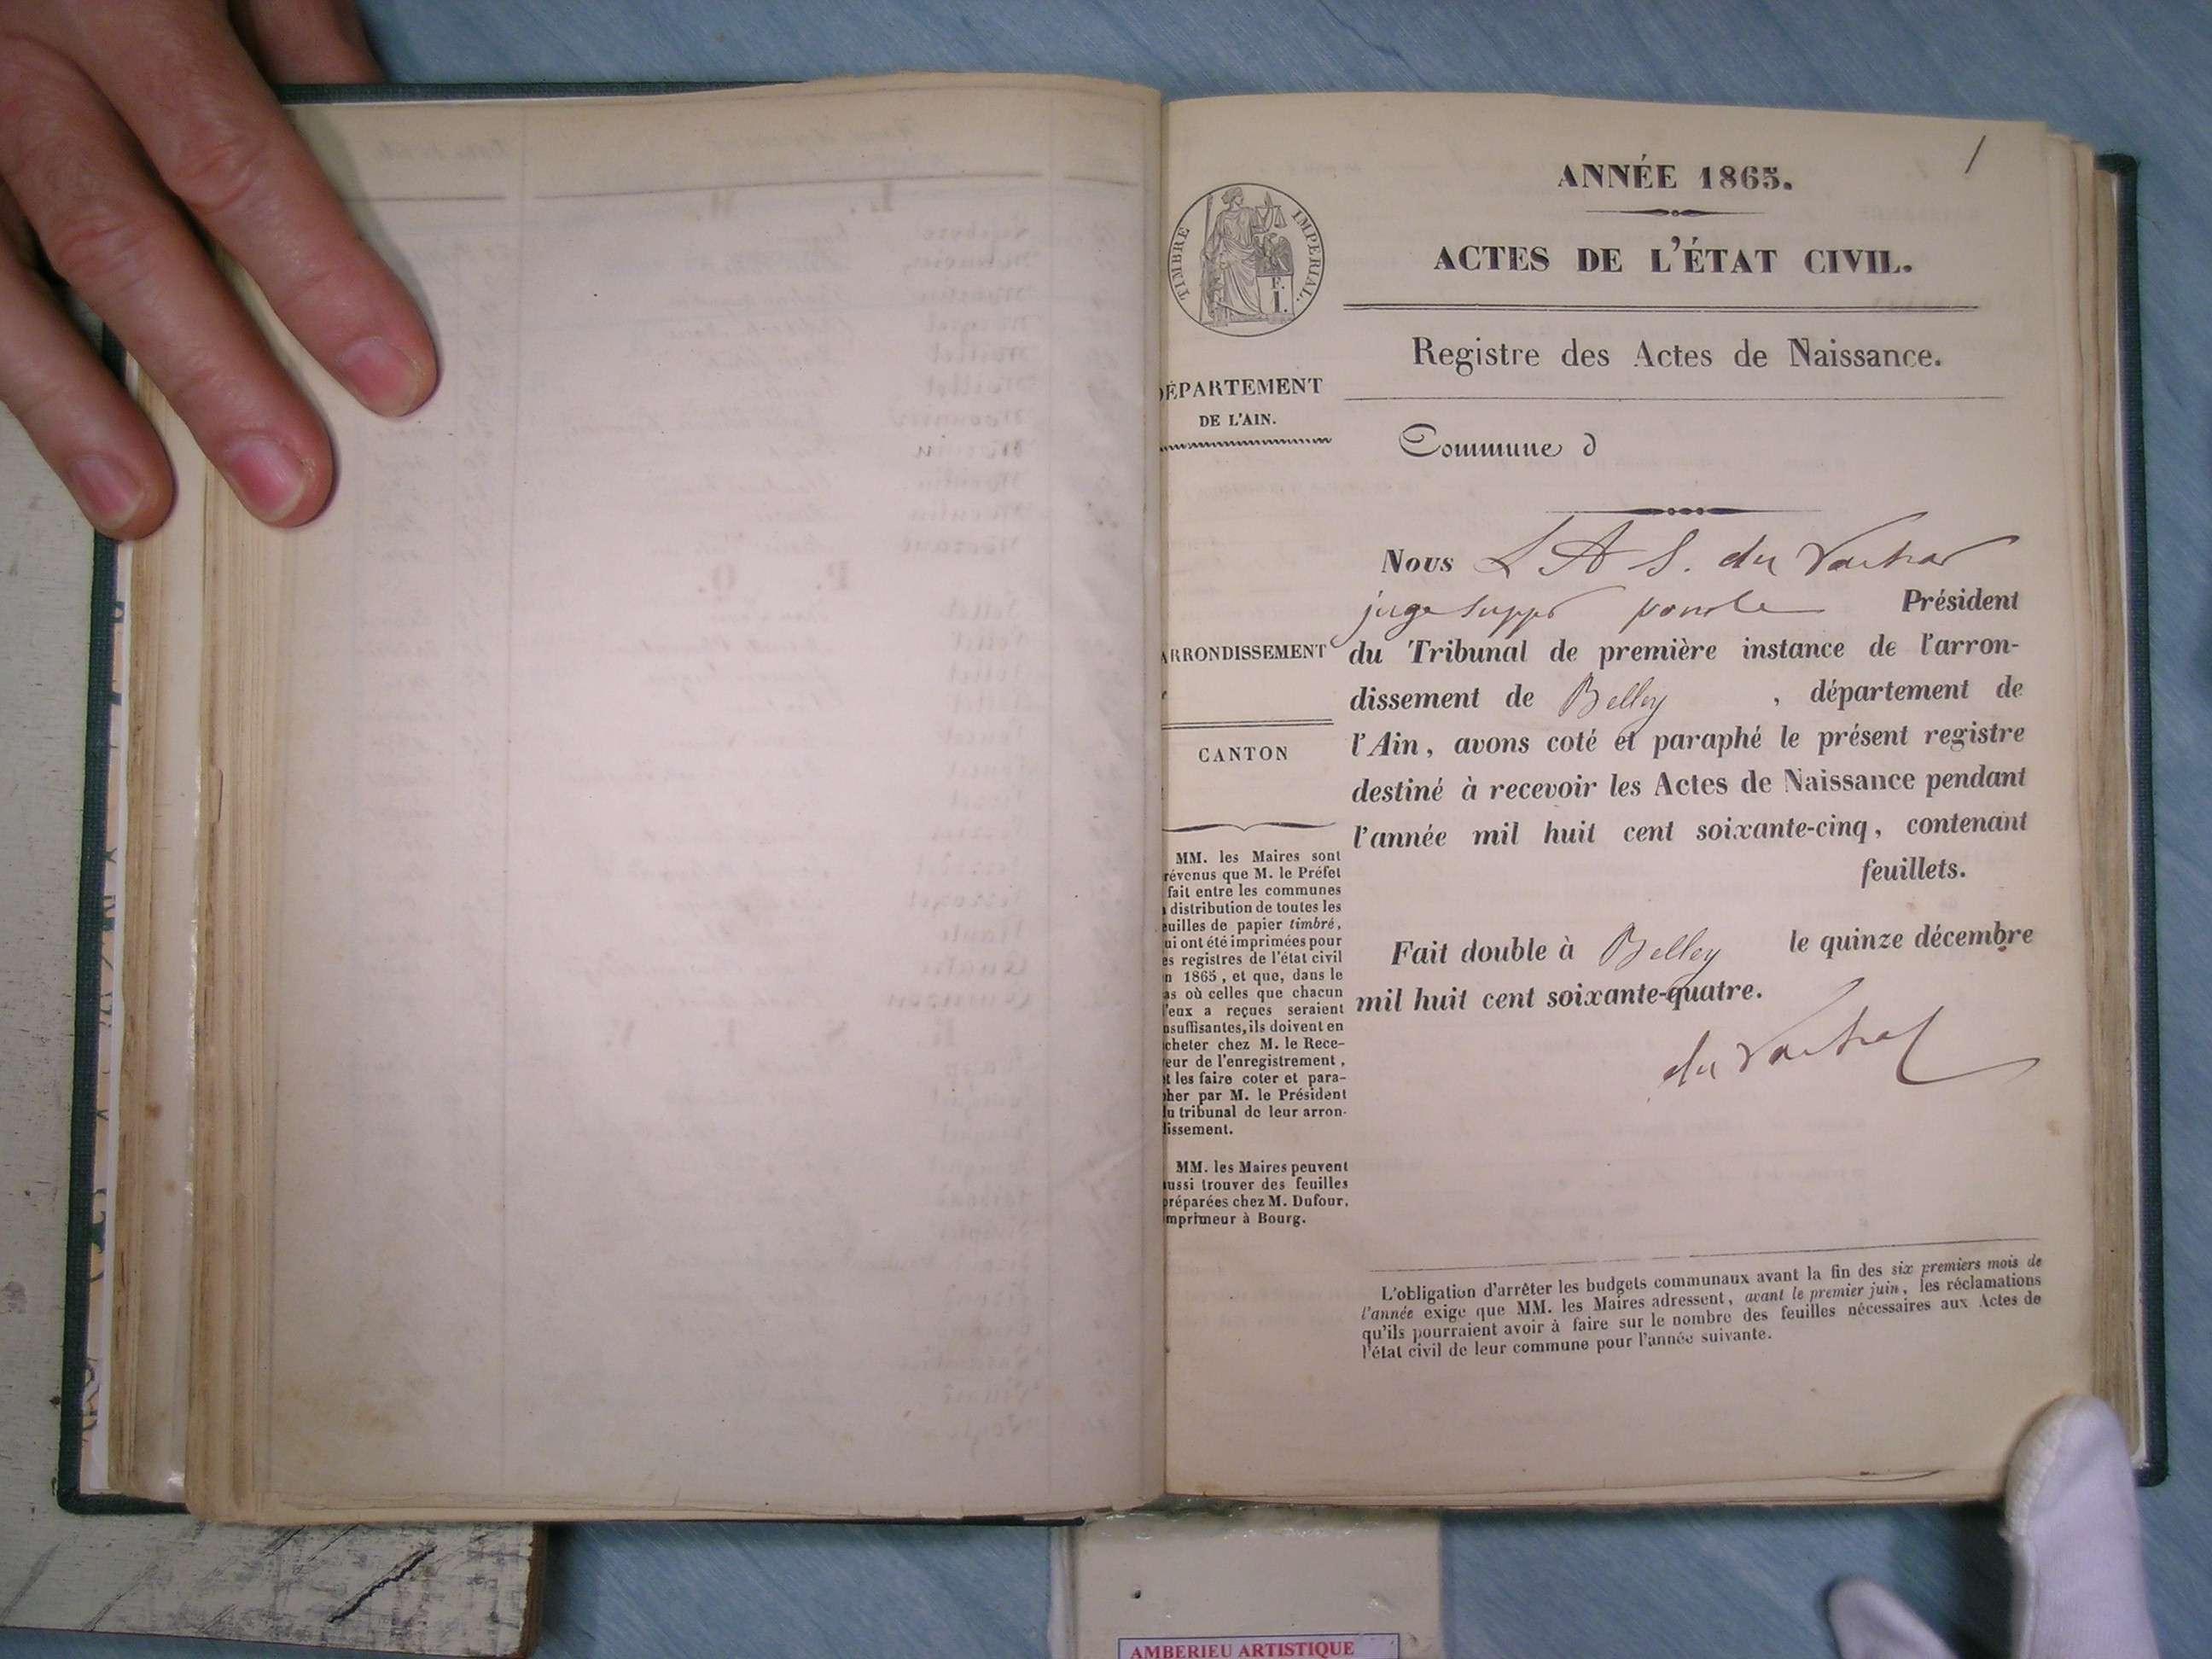 1
ANNÉE 1865.
ACTES DE L'ÉTAT CIVIL.
Registre des Actes de Naissance.
Commune d
TIMBRE IMPERIAL.
E.
I.
DÉPARTEMENT
DE L'AIN.
ARRONDISSEMENT
CANTON
MM. les Maires sont
révenus que M. le Préfet
fait entre les communes
distribution de toutes les
euilles de papier timbré,
ui ont été imprimées pour
es registres de l'état civil
n 1865, et que, dans le
as où celles que chacun
'eux a reçues seraient
nsuffisantes, ils doivent en
cheter chez M. le Rece-
eur de l'enregistrement,
t les faire coter et para-
pher par M. le Président
du tribunal de leur arron-
dissement.
MM. les Maires peuvent
aussi trouver des feuilles
préparées chez M. Dufour,
imprimeur à Bourg.
Nous L A S. du
juge Président
du Tribunal de première instance de l'arron-
dissement de Belley , département de
l'Ain, avons coté et paraphé le présent registre
destiné à recevoir les Actes de Naissance pendant
l'année mil huit cent soixante-cinq, contenant
feuillets.
Fait double à Belley le quinze décembre
mil huit cent soixante-quatre.
du
L'obligation d'arrêter les budgets communaux avant la fin des six premiers mois de
l'année exige que MM. les Maires adressent, avant le premier juin, les réclamations
qu'ils pourraient avoir à faire sur le nombre des feuilles nécessaires aux Actes de
l'état civil de leur commune pour l'année suivante.
AMBERIEU ARTISTIQUE